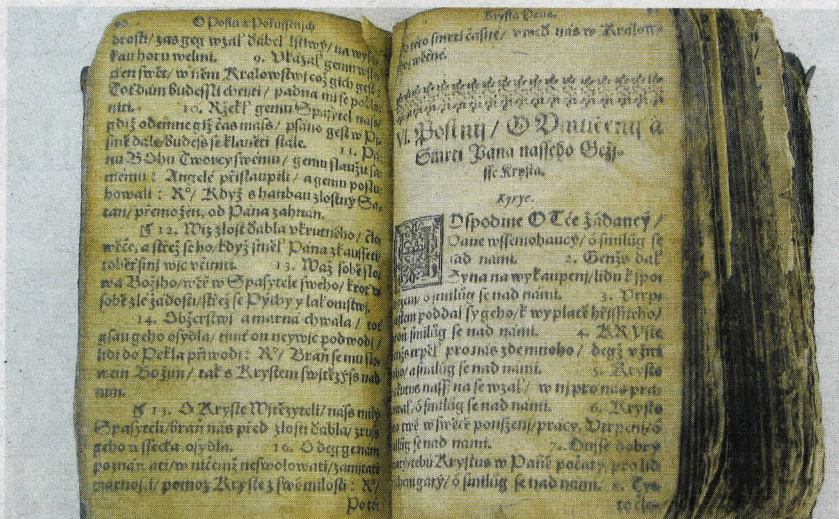 O Postu a Pokussenjch
drosti/ zas geg wzal ďábel lstiwý/ na wyso-
kau horu welmi. 9. Vkázal gemu
den swět/ w něm Kralowstwj což gich gest
Toť dám budeßli chtjti/ padna mi se pokl
niti. 10. Ržekl gemu Spasytel náß
gdiž odemne giž čas máß/ psáno gest w Pj
smě dále/ budeß se klaněti stále.
11. Pá
nu Bohu Tworcy swému/ gemu slaužiti sa
mému: Angelé přistaupili/ a gemu poslu
howali: R°/ Když s hanbau zlostný Sa-
tan/ přemožen, od Pána zahnán.
12. Wiz zlost ďábla vkrutného/ člo
wěče, a střez se ho/ když směl Pána zkausseti
tobě činj wjc včiniti. 13. Waž sobě slo
wa Božjho/ wěř w Spasytele swého/ kroť w
sobě zlé žádosti/ střez se Pýchy y lakomstwj.
14. Obžerstwj a marná chwála/ toť
gsau geho osýdla/ tjmť on neywjc podwodj/
lidi do Pekla přiwodj: R°/ Braň se mu slo
wem Božjm/ tak s Krystem swjtězýß nad
njm.
15. O Kryste Wjtězyteli/ náß milý
Spasyteli/ braň nás před zlostj ďábla/ zruß
geho wssecka osýdla. 16. O deg ge nám
poznáwati/ w ničemž neswolowati/ zamjtati
marnosti/ pomoz Kryste z swé milosti: R°/
Poto-
Krysta Pána.
této smrti časné/ vweď nás w Kralow-
wěčné.
VI. Postnj/ O Vmučenj a
Smrti Pána nasseho Gežj-
sse Krysta.
Kyrye.
HOspodine OTče žádaucý/
Pane wssemohaucý/ ó smilůg se
nad námi. 2. Genžs dal
Syna na wykaupenj/ lidu k spa
ó smilůg se nad námi. 3. Vtrp-
poddal sy geho/ k wyplatě hřjssného/
ó smilůg se nad námi. 4. KRYste
trpěl pro nás zde mnoho/ degž vžiti
ho/ a smilůg se nad námi. 5. Kryste
nass na se wzal/ w nj pro nás pra-
wal/ ó smilůg se nad námi. 6. Kryste
twé w swětě ponjženj/ prácy, Vtrpenj/ ó
smilůg se nad námi. 7. Dusse dobrý
Krystus w Panně počatý/ pro lid
ó smilůg se nad námi. 8. Tys
to cle-